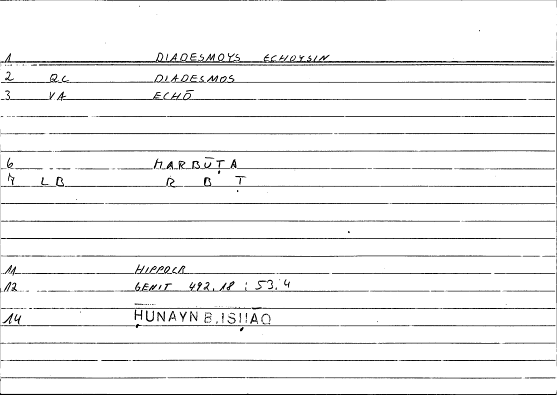 1 DIADESMOYS ECHOYSIN
2 QC DIADESMOS
3 VA ECHŌ
6 MARBŪṬA
7 LB R B Ṭ
11 HIPPOCR
12 GENIT 492,18 : 53,4
14 ḤUNAYN B. ISḤĀQ